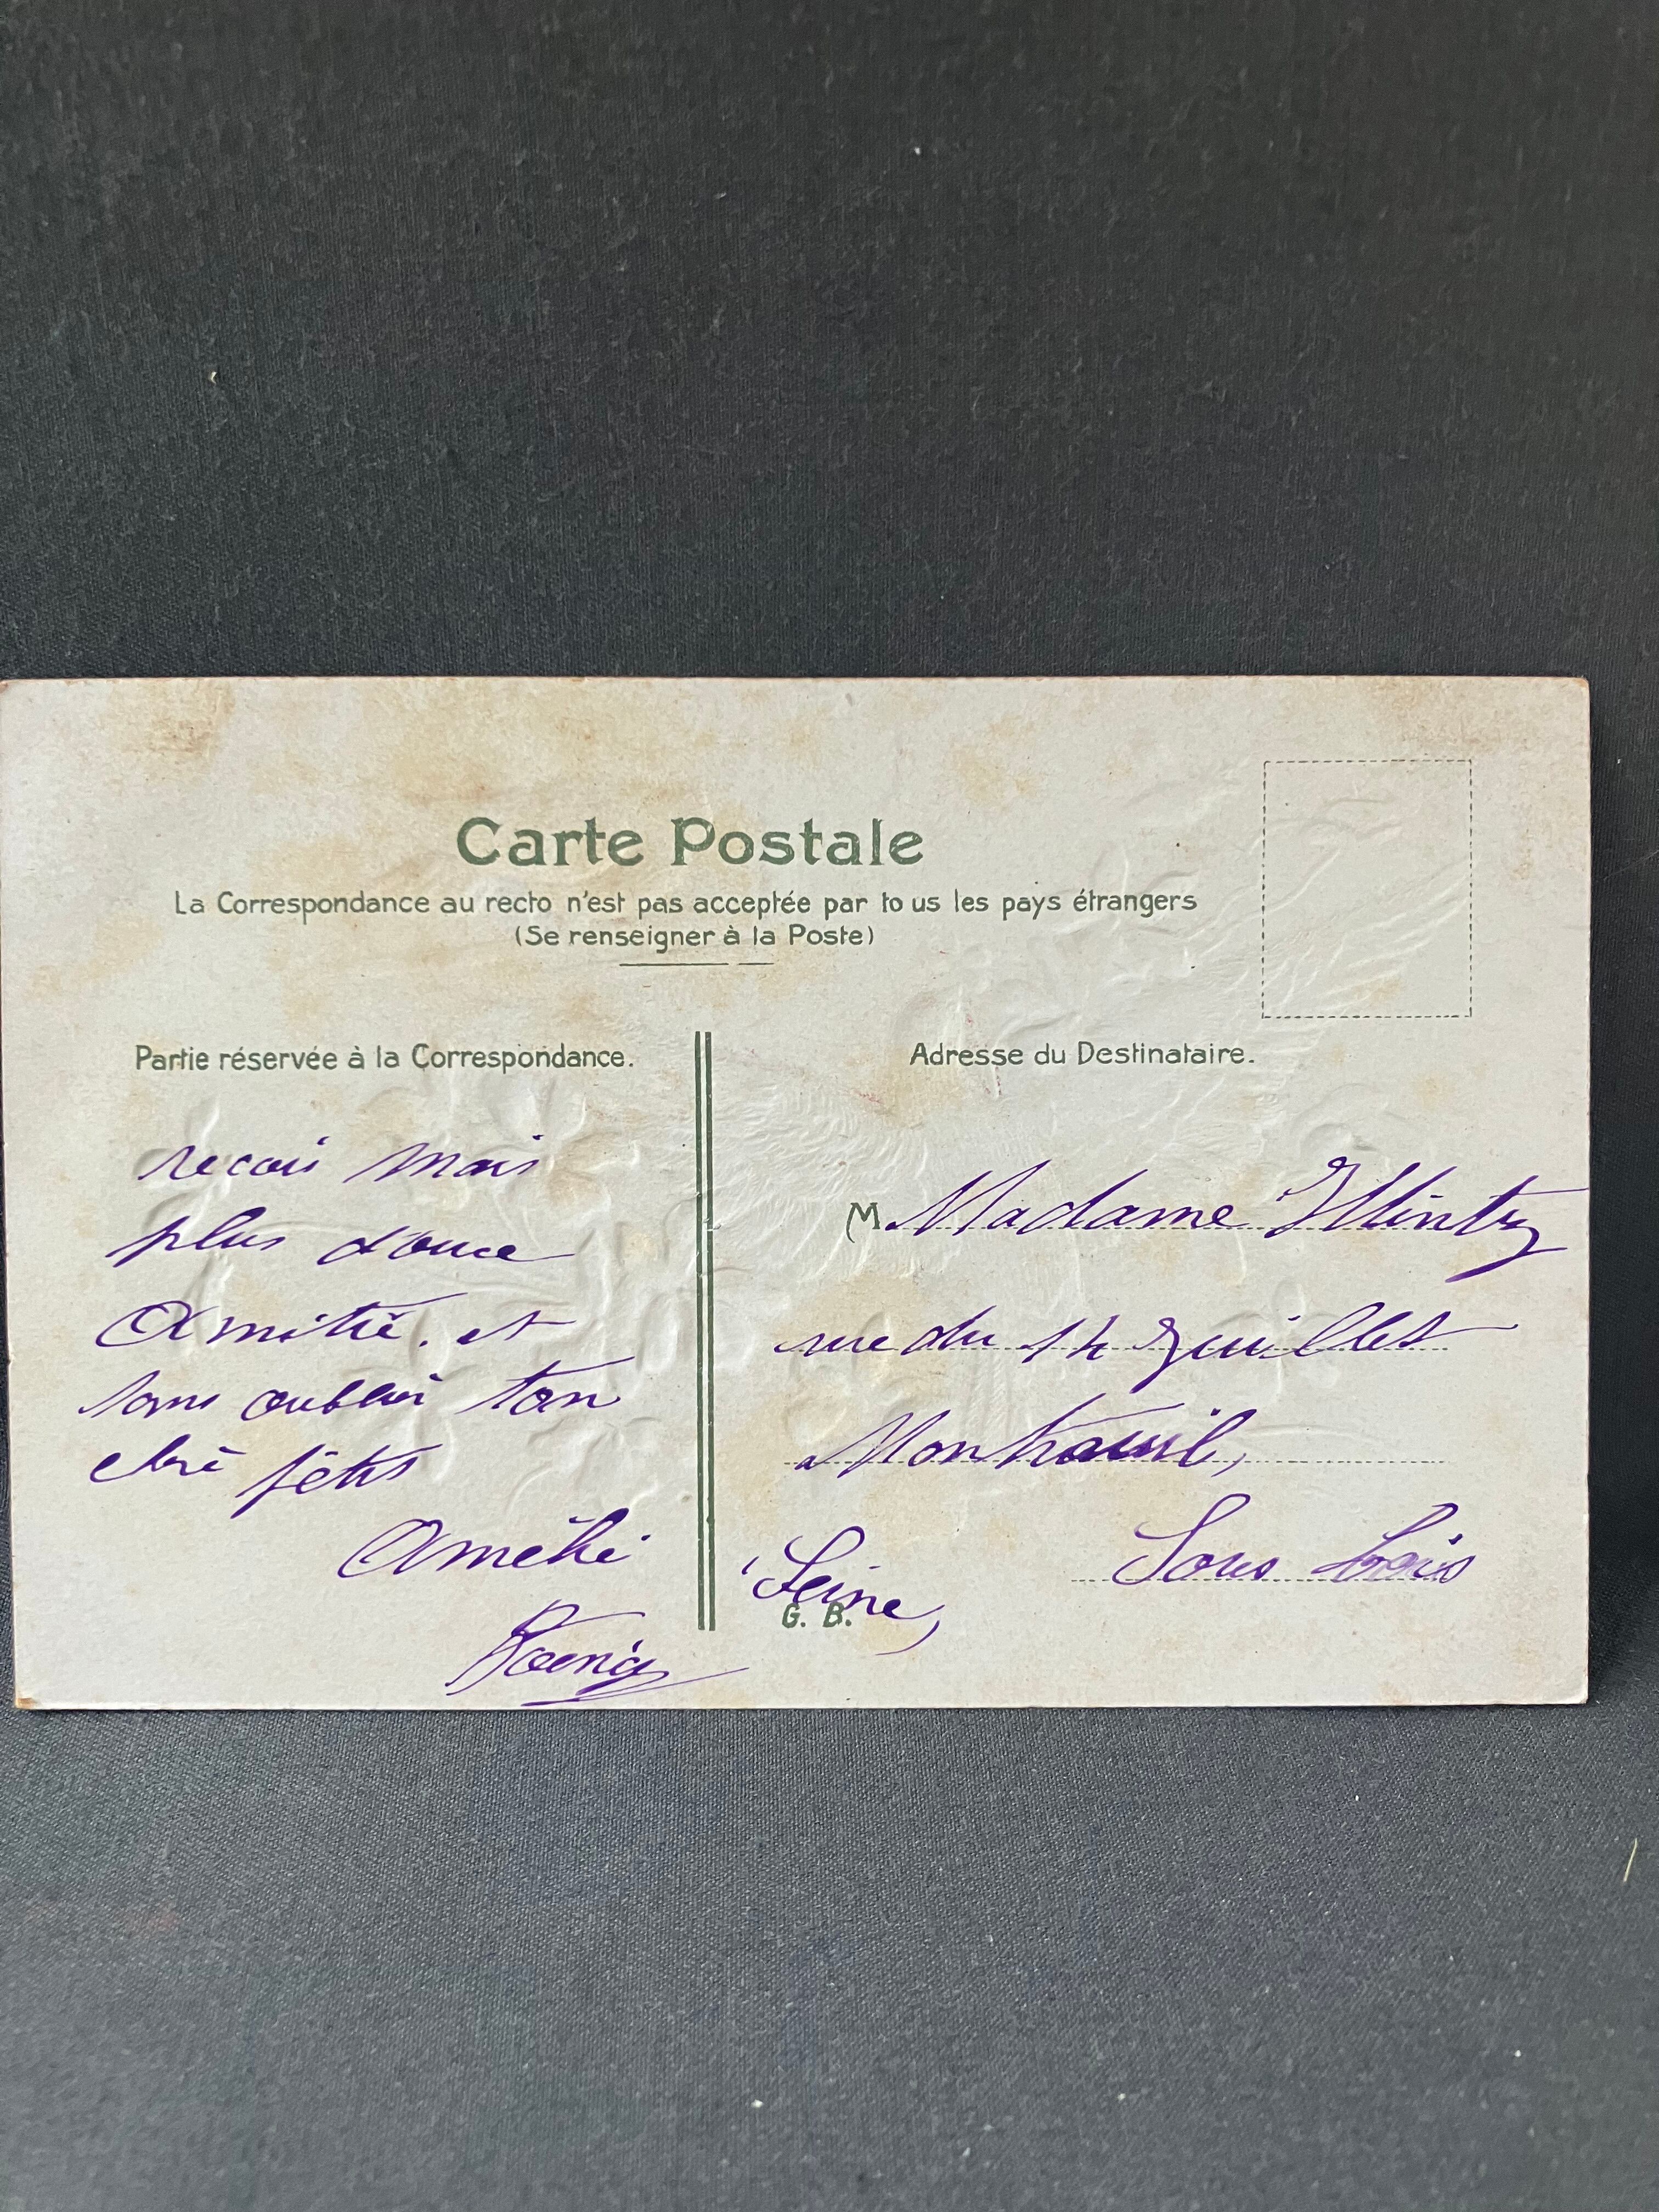 Carte Postale
La Correspondance au recto n'est pas acceptée par to us les pays étrangers
(Se renseigner à la Poste)
Partie réservée à la Correspondance.
recois mais
plus douce
Amitié. et
sans oublier ton
cheri fêtes
Amélie
Koenig
Adresse du Destinataire.
M. Madame
rue du 14 Juillet
a Montreuil,
Sous Bois
Seine,
G. B.